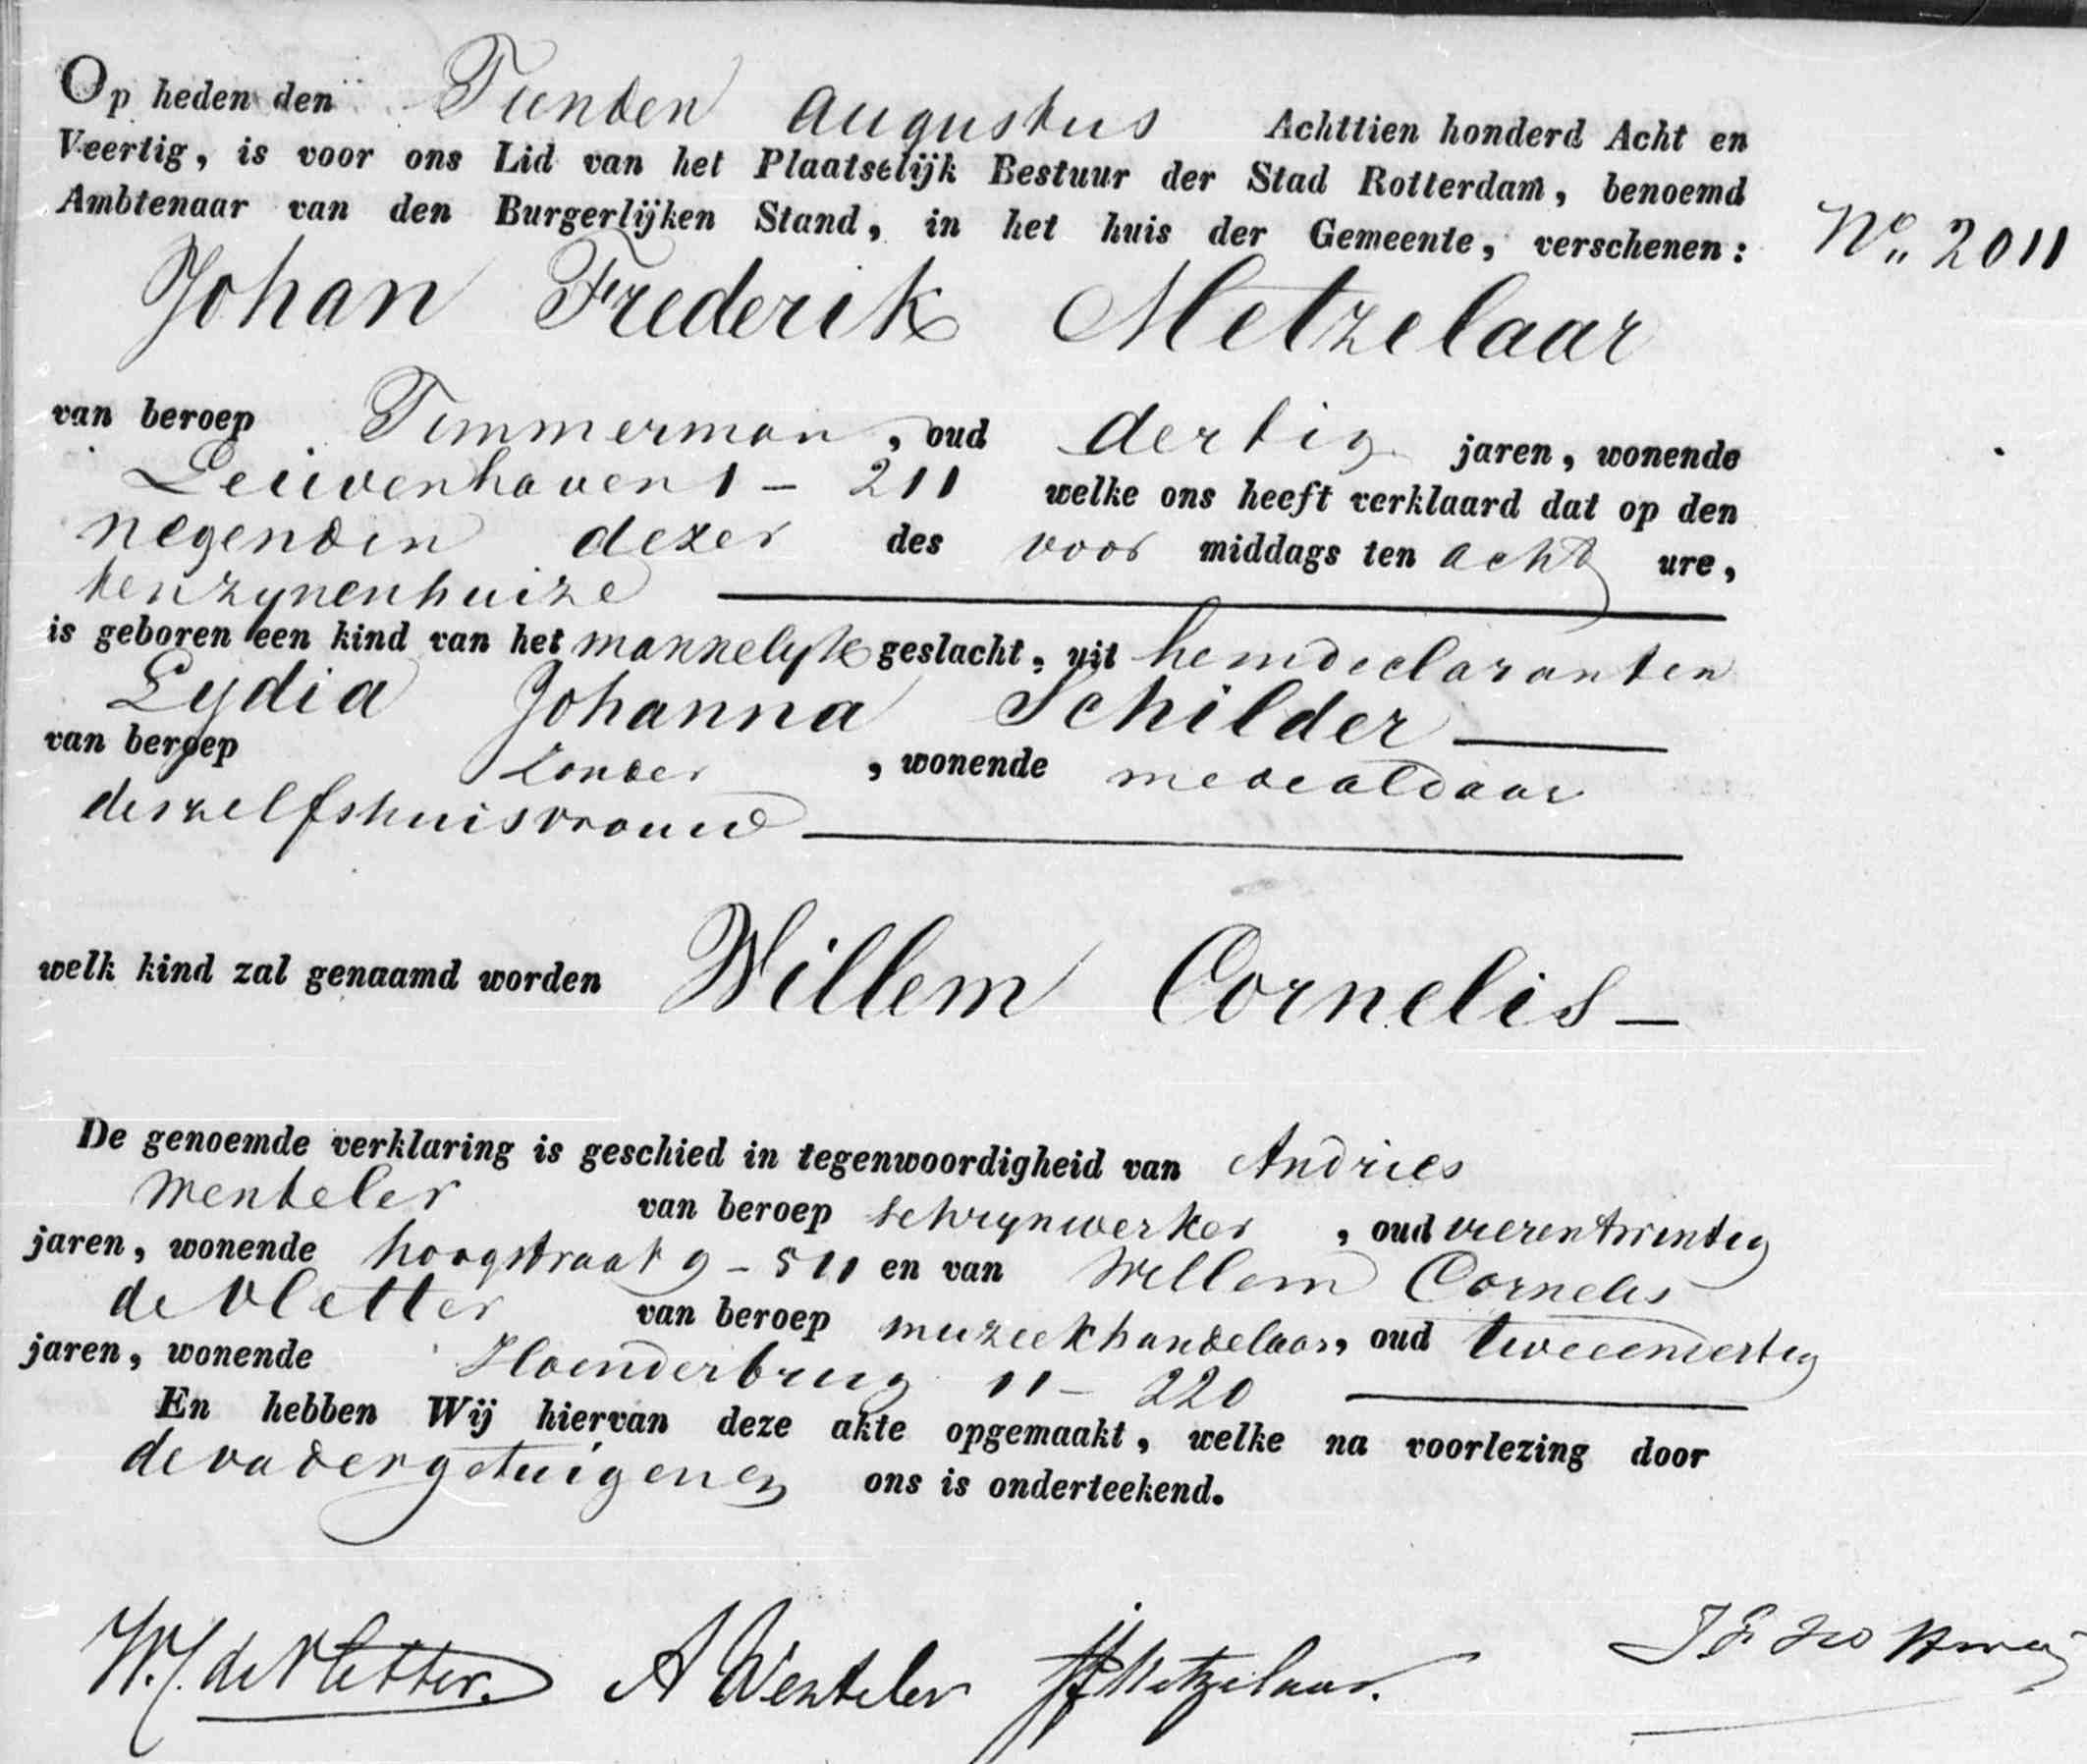 Op heden den Tienden Augustus Achttien honderd Acht en
Veertig, is voor ons Lid van het Plaatselijk Bestuur der Stad Rotterdam, benoemd
Ambtenaar van den Burgerlijken Stand, in het huis der Gemeente, verschenen:
No. 2011
Johan Frederik Metzelaar
van beroep Timmerman, oud dertig jaren, wonende
Leuvenhaven 1 - 211 welke ons heeft verklaard dat op den
negenden dezer des voor middags ten acht ure,
tenzynenhuize
is geboren een kind van het mannelyk geslacht, uit hem declaranten
Lydia Johanna Schilder
van beroep Zonder, wonende mede aldaar
deszelfs huisvrouw
welk kind zal genaamd worden Willem Cornelis
De genoemde verklaring is geschied in tegenwoordigheid van Andries
Wenteler van beroep schrynwerker, oud vierentwintig
jaren, wonende hoogstraat 9 - 511 en van Willem Cornelis
de Vletter van beroep muzeekhandelaar, oud tweeendertig
jaren, wonende Hoenderbrug 11 - 220
En hebben Wij hiervan deze akte opgemaakt, welke na voorlezing door
de vader getuigen en ons is onderteekend.
W. C. de Vletter. A Wenteler JF Metzelaar.